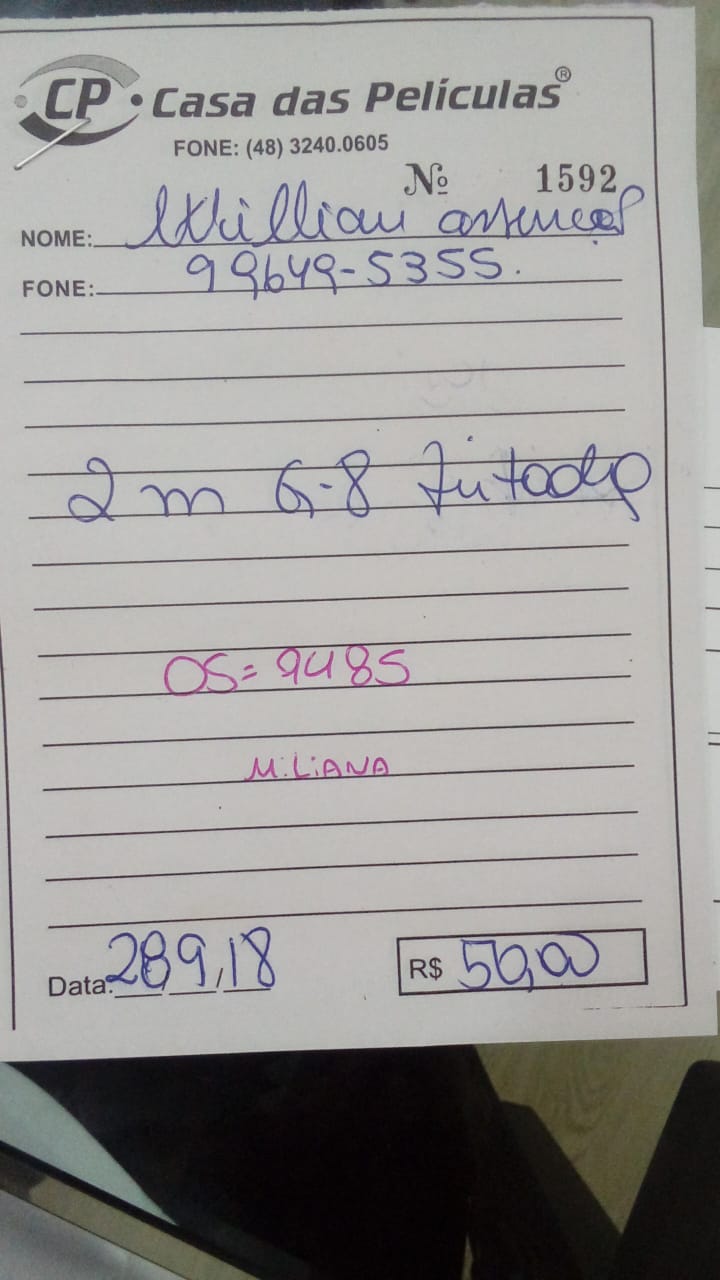 CP • Casa das Películas®
FONE: (48) 3240.0605
Nº 1592
NOME: Willian
FONE: 99649-5355.
2 m G-8
OS= 9485
MiLiANA
Data: 28/9/18 R$ 50,00